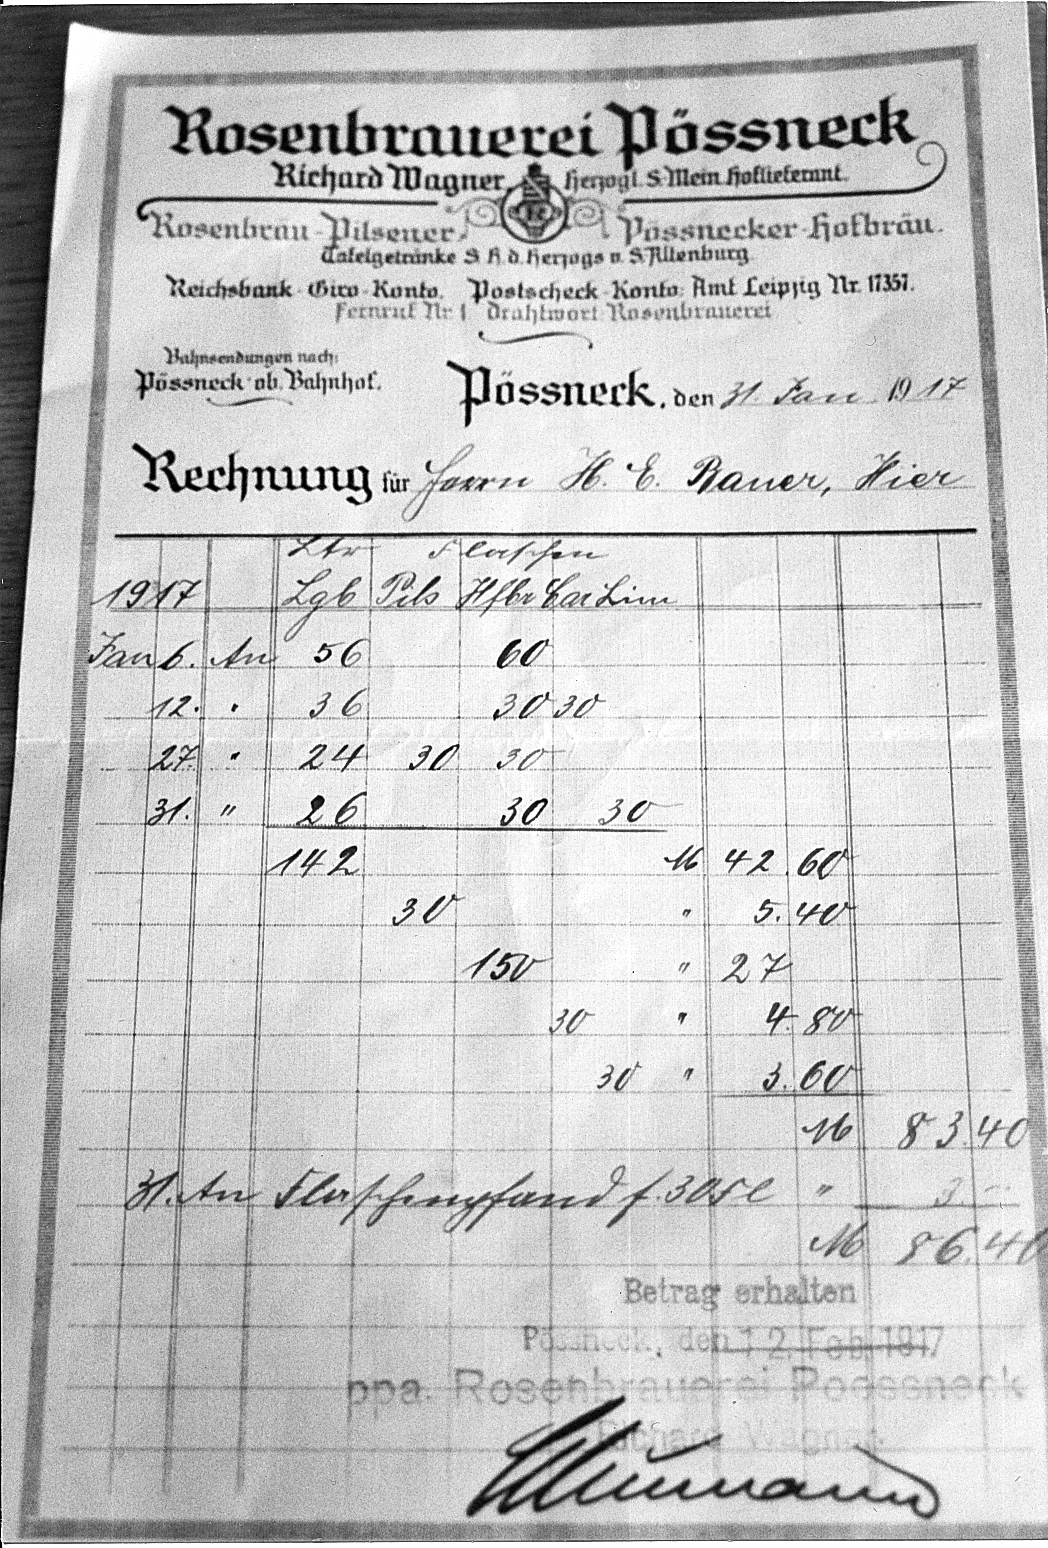 Rosenbrauerei Pössneck
Richard Wagner, Herzogl. S. Mein. Hoflieferant.
Rosenbräu-Pilsener, Pössnecker-Hofbräu.
Tafelgetränke S. H. d. Herzogs v. S. Altenburg.
Reichsbank-Giro-Konto. Postscheck-Konto: Amt Leipzig Nr. 17357.
Fernruf Nr. 1 Drahtwort: Rosenbrauerei
Bahnsendungen nach:
Pössneck ob. Bahnhof.
Pössneck, den 31. Jan 1917
Rechnung für Herrn H. E. Bauer, Hier
Ltr Flaschen
1917 Lgb Pils Hfbr Car Lim
Jan 6. An 56 60
12. " 36 30 30
27. " 24 30 30
31. " 26 30 30
142 M 42.60
30 " 5.40
150 " 27
30 " 4.80
30 " 3.60
M 83.40
31. An Flaschenpfand f. 30 Fl " 3.--
M 86.40
Betrag erhalten
Pössneck, den 12. Feb. 1917
ppa. Rosenbrauerei Poessneck
Richard Wagner